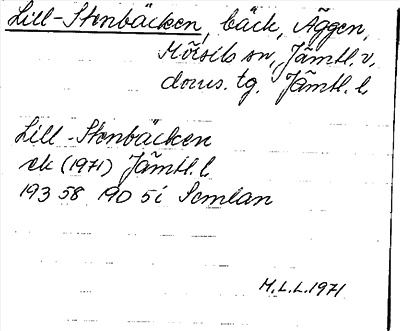 Lill-Stenbäcken, bäck, Äggen,
Mörsils sn, Jämtl. v.
doms. tg. Jämtl. l.
Lill-Stenbäcken
ek (1971) Jämtl. l.
193 58 190 5i Semlan
H.L.L. 1971